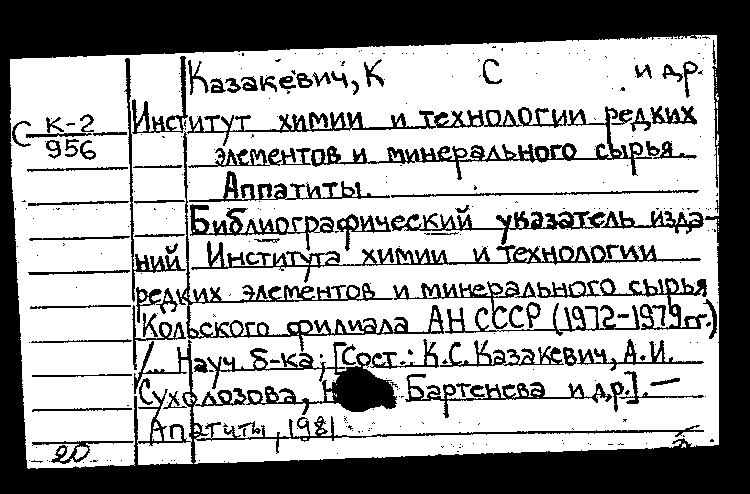 Казакевич, К С и др.
С К-2
956
Институт химии и технологии редких
элементов и минерального сырья.
Аппатиты.
Библиографический указатель изда-
ний Института химии и технологии
редких элементов и минерального сырья
Кольского филиала АН СССР (1972-1979гг.)
/... Науч. б-ка; [Сост.: К.С. Казакевич, А.И.
Сухолозова, Бартенева и др.]. —
Апатиты, 1981
20